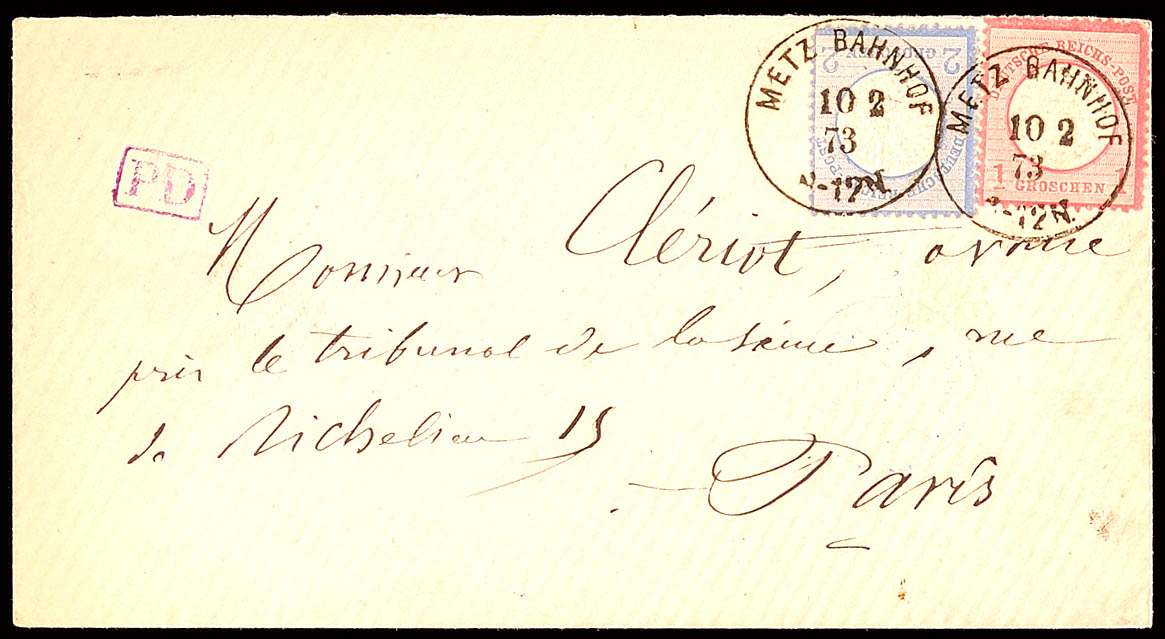 METZ BAHNHOF
10 2
73
-12N.
2 GROSCHEN 2
DEUTSCHE REICHS-POST
METZ BAHNHOF
10 2
73
-12N.
DEUTSCHE REICHS-POST
1 GROSCHEN 1
PD
Monsieur Clériot, avoué
près le tribunal de la seine, rue
de Richelieu 15
Paris